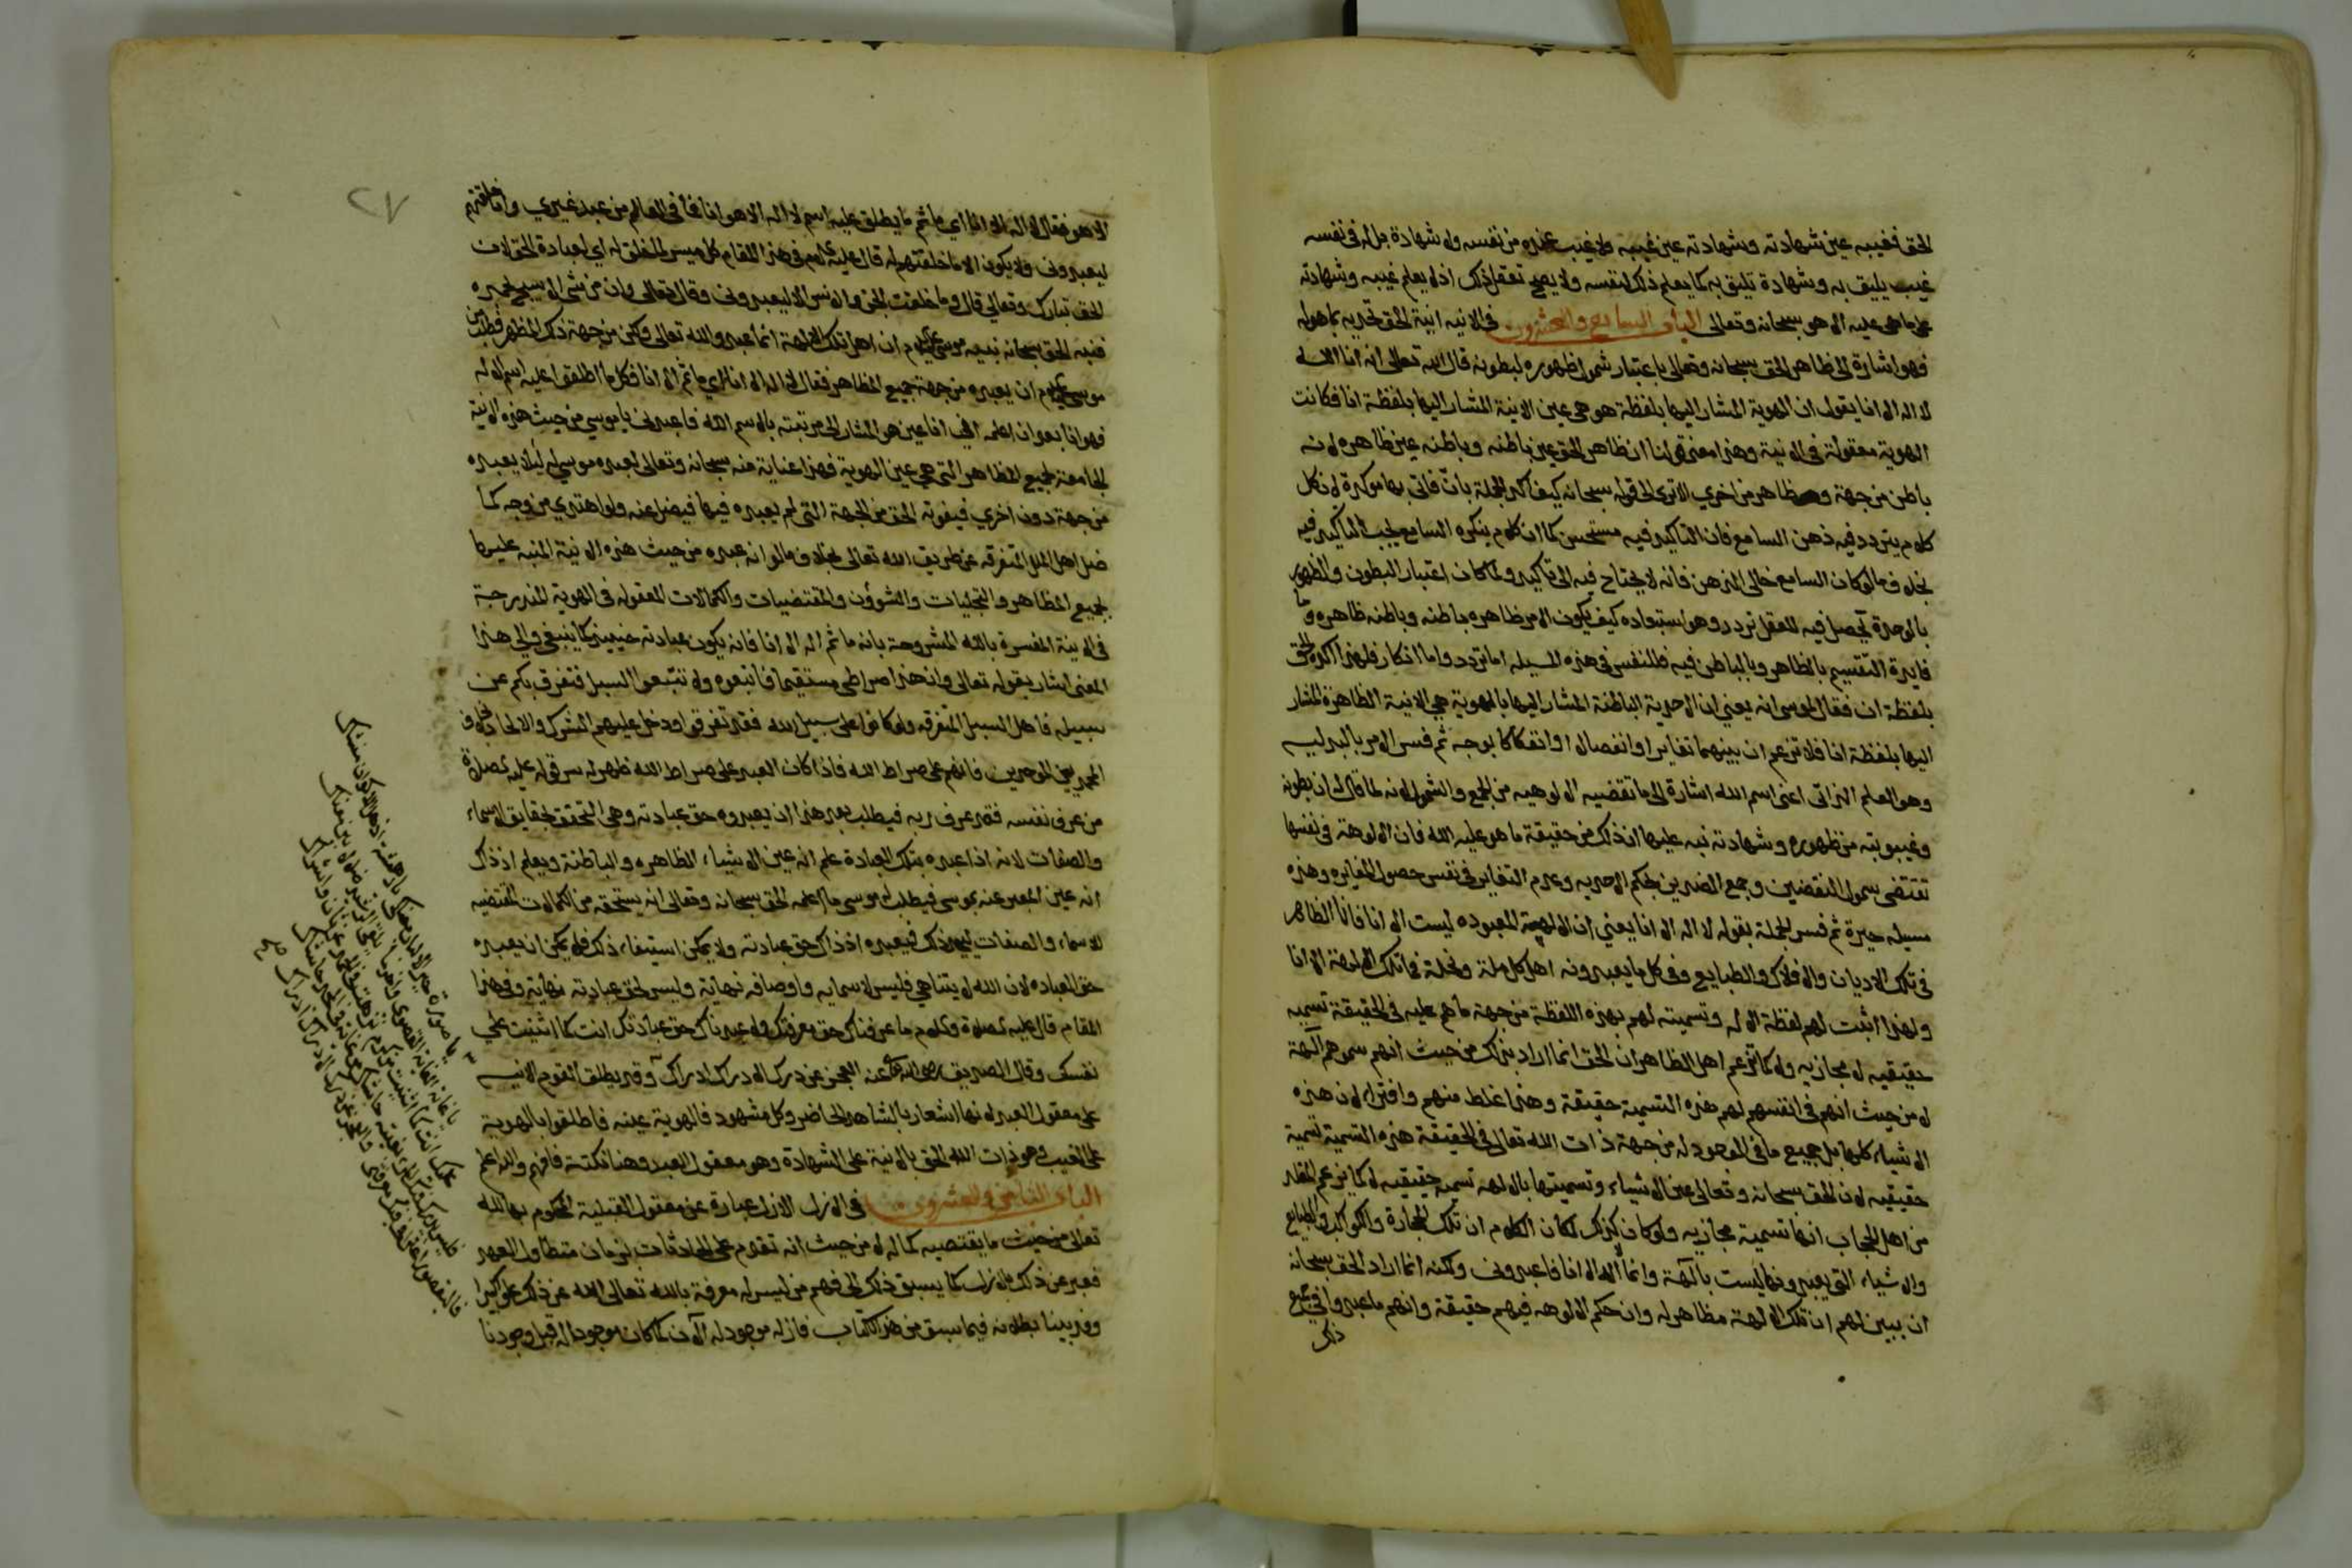 الحق فغيبه عين شهادته وشهادته عين غيبه ولا غيب عنده من نفسه ولا شهادة بل له في نفسه
غيب يليق به وشهادة تليق به كما يعلم ذلك لنفسه ولا يصح تعقل ذلك اذ لا يعلم غيبه وشهادته
على ما هي عليه الا هو سبحانه وتعالى الباب السابع والعشرون في الانيه انية الحق تحديه بما هو له
فهو اشارة الى ظاهر الحق سبحانه وتعالى باعتبار شمول ظهوره لبطونه قال الله تعالى انه انا الله
لا اله الا انا يقول ان الهوية المشار اليها بلفظة هو هي عين الانية المشار اليها بلفظة انا فكانت
الهوية معقولة في الانية وهذا معنى قولنا ان ظاهر الحق عين باطنه وباطنه عين ظاهره لا نه
باطن من جهة وظاهر من اخرى الا ترى الى قوله سبحانه كيف اكد الجملة بانّ فاتى بها موكدة لان كل
كلام يتردد فيه ذهن السامع فان التاكيد فيه مستحسن كما ان كلام ينكره السامع يجب التاكيد فيه
بخلاف ما لو كان السامع خالى الذهن فانه لا يحتاج فيه الى تاكيد ولما كان اعتبار البطون والظهور
بالوحدة يحصل فيه للعقل تردد وهو استبعاده كيف يكون الامر ظاهره باطنه وباطنه ظاهره وما
فايدة التقسيم بالظاهر وبالباطن فيه فللنفس في هذه المسيله اما تردد واما انكار فلهذا اكده الحق
بلفظة ان فقال لموسى انه يعني ان الاحدية الباطنة المشار اليها بالهوية هي الانية الظاهرة المشار
اليها بلفظة انا فلا تزعم ان بينهما تغايرا او انفصالا او انفكاكا بوجه ثم فسر الامر بالبدليه
وهو العلم الذاتى اعنى اسم الله اشارة الى ما تقتضيه الالوهيه من الجمع والشمول لانه لما قال ان بطونه
وغيبوبته من ظهوره وشهادته نبه عليها ان ذلك من حقيقة ما هو عليه الله فان الالوهة في نفسها
تقتضى شمول النقيضين وجمع الضدين بحكم الاحديه وعدم التغاير في نفس حصول المغايره وهذه
مسيله حيرة ثم فسر الجملة بقوله لا اله الا انا يعني ان الالهية المعبوده ليست الا انا فانا الظاهر
في تلك الاديان والافلاك والطبايع وفي كل ما يعبدونه اهل كل ملة ونحلة فما تلك الالهة الا انا
ولهذا اثبت لهم لفظة الاله وتسميته لهم بهذه اللفظة من جهة ما هم عليه في الحقيقة تسميه
حقيقيه لا مجازيه ولا كما تزعم اهل الظاهر ان الحق انما اراد بذلك من حيث انهم سموهم آلهة
لا من حيث انهم في انفسهم لهم هذه التسمية حقيقة وهذا غلط منهم وافتراء لان هذه
الاشياء كلها بل جميع ما في الوجود له من جهة ذات الله تعالى في الحقيقة هذه التسمية تسمية
حقيقيه لان الحق سبحانه وتعالى عين الاشياء وتسميتها بالالهة تسمية حقيقيه لا كما يزعم المقلد
من اهل الحجاب انها تسمية مجازيه ولو كان كذلك لكان الكلام ان تلك الحجارة والكواكب والطبايع
والاشياء التي يعبدونها ليست بآلهة وانما لا اله الا انا فاعبدوني ولكنه انما اراد الحق سبحانه
ان يبين لهم ان تلك الالهة مظاهر له وان حكم الالوهه فيهم حقيقة وانهم ما عبدوا في جميع
ذلك
٢٧
الا هو فقال لا اله الا انا اي ما ثم ما يطلق عليه اسم لا اله الا هو انا فما في العالم من عبد غيري وانا خلقتهم
ليعبدوني ولا يكون الا ما خلقتهم له قال عليه السلام في هذا المقام كل ميسر لما خلق له اي لعبادة الحق لان
الحق تبارك وتعالى قال وما خلقت الجن والانس الا ليعبدوني وقال تعالى وان من شيء الا يسبح بحمده
فنبه الحق سبحانه نبيه موسى عليه السلام ان اهل تلك الالهة انما عبدوا الله تعالى ولكن من جهة ذلك المظهر فطلب من
موسى عليه السلام ان يعبده من جهة جميع المظاهر فقال لا اله الا انا اي ما ثم الا انا فكل ما اطلقوا عليه اسم الاله
فهو انا بعد ان اعلمه انى انا عين هو المشار الى مرتبته بالاسم الله فاعبدنى يا موسى من حيث هذه الانية
الجامعة لجميع المظاهر التي هي عين الهوية فهذا عناية منه سبحانه وتعالى بعبده موسى له ليلا يعبده
من جهة دون اخرى فيفوته الحق من الجهة التى لم يعبده فيها فيضل عنه ولو اهتدى من وجه كما
ضل اهل الملل المتفرقه عن طريق الله تعالى بخلاف ما لو انه عبده من حيث هذه الانية المنبه عليها
بجميع المظاهر والتجليات والشؤون والمقتضيات والكمالات المعقوله في الهوية المندرجة
في الانية المفسرة بالله المشروحة بانه ما ثم اله الا انا فانه يكون عبادته حينيذ كما ينبغي والى هذا
المعنى اشار بقوله تعالى وان هذا صراطى مستقيما فاتبعوه ولا تتبعوا السبل فتفرق بكم عن
سبيله فاهل السبل المتفرقه ولو كانوا على سبيل الله فقد تفرقوا ودخل عليهم الشرك والالحاد بخلاف
المحمديين الموحدين فانهم على صراط الله فاذا كان العبد على صراط الله ظهر له سر قوله عليه الصلاة
من عرف نفسه فقد عرف ربه فيطلب بعد هذا ان يعبدوه حق عبادته وهى التحقق بحقايق الاسماء
والصفات لانه اذا عبده بتلك العبادة علم انه عين الاشياء الظاهره والباطنة ويعلم اذ ذاك
انه عين المعبر عنه بموسى فيطلب له موسى ما اعلمه الحق سبحانه وتعالى انه يستحقه من الكمالات المقتضيه
للاسماء والصفات ليجد ذلك فيعبده اذ ذاك حق عبادته ولا يمكن استيفاء ذلك فلا يمكن ان يعبده
حق العباده لان الله لا يتناهى فليس لاسمايه واوصافه نهاية وليس لحق عبادته نهاية وفي هذا
المقام قال عليه الصلاة والسلام ما عرفناك حق معرفتك ولا عبدناك حق عبادتك انت كما اثنيت على
نفسك وقال الصديق رضى الله عنه العجز عن درك الادراك ادراك وقد يطلق القوم الانيه
على معقول العبد لانها اشعار بالشاهد الحاضر وكل مشهود فالهوية عينه فاطلقوا بالهوية
على الغيب وهو ذات الله الحق بالانية على الشهادة وهو معقول العبد وهنا نكتة فافهم والله اعلم
الباب الثامن والعشرون في الازل الازل عبارة عن معقول القبلية المحكوم بها لله
تعالى من حيث ما يقتضيه كماله لا من حيث انه تقدم على الحادثات بزمان متطاول العهد
فعبر عن ذلك بالازل كما يسبق ذلك الى فهم من ليس له معرفة بالله تعالى الله عن ذلك علوا كبيرا
وقد بينا بطلانه فيما سبق من هذا الكتاب فازله موجود له الآن كما كان موجودا له قبل وجودنا